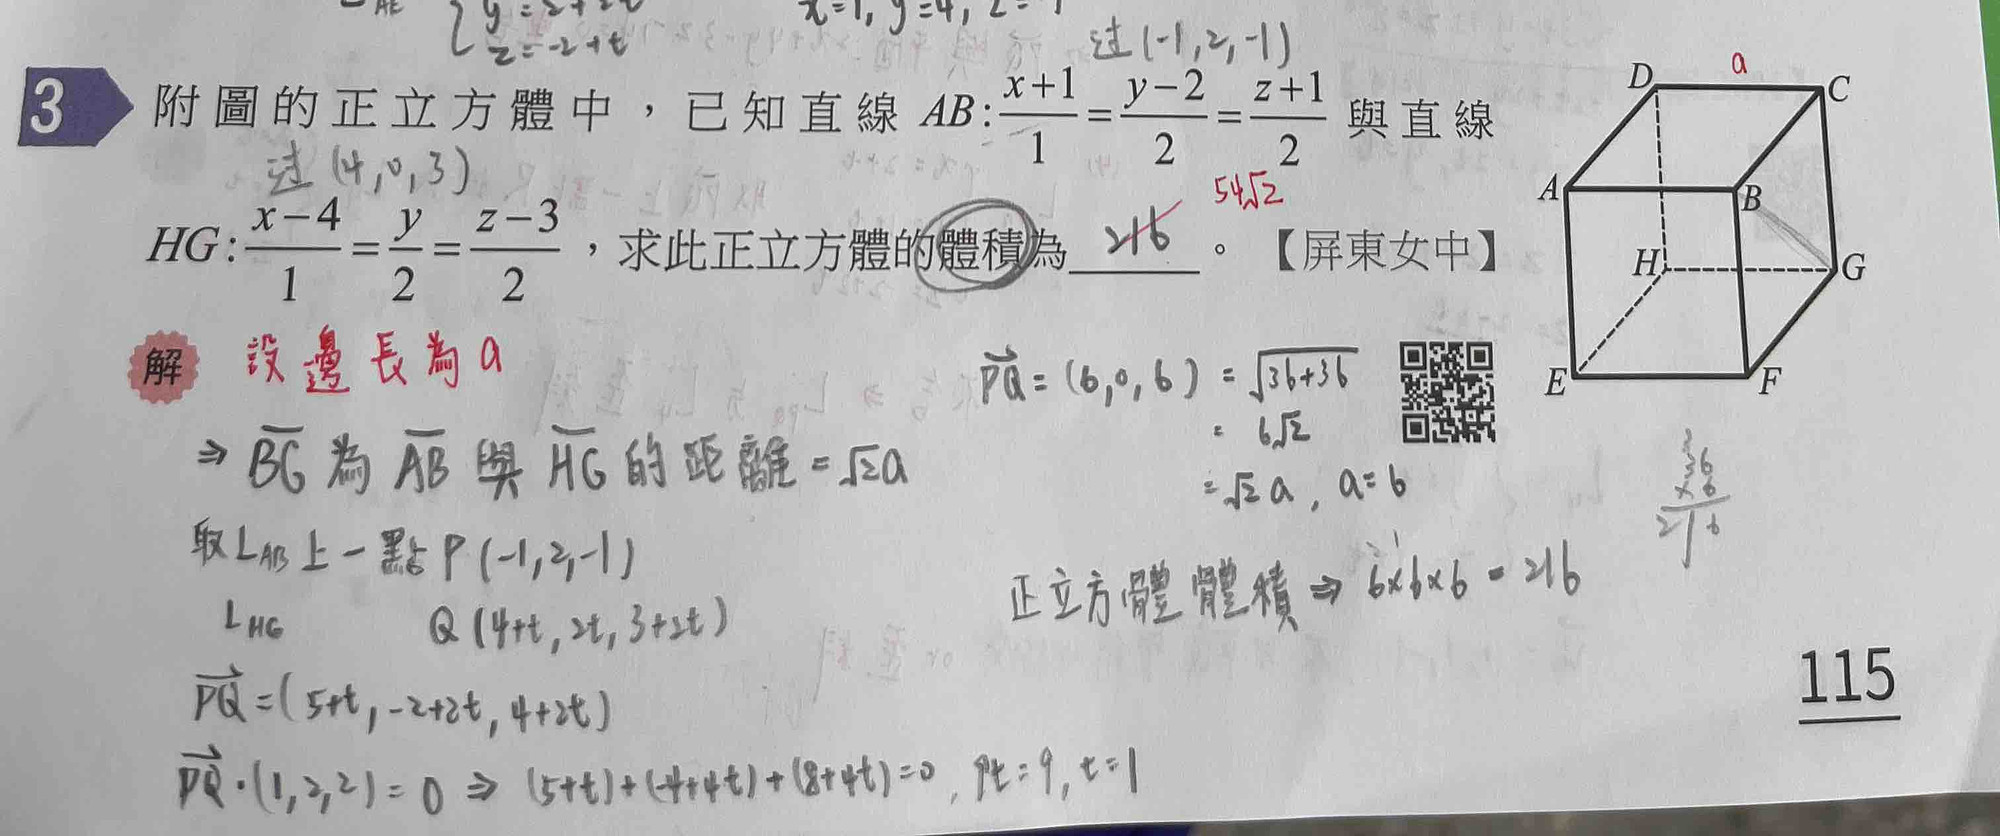 { y = 2+2t
z = -2+t
x=1, y=4, z=-1
过(-1,2,-1)
3 附圖的正立方體中，已知直線 AB: (x+1)/1 = (y-2)/2 = (z+1)/2 與直線
过(4,0,3)
54√2
HG: (x-4)/1 = y/2 = (z-3)/2 ，求此正立方體的體積為 216 。【屏東女中】
D a C
A B
H G
E F
解 設邊長為a
⇒ BG 為 AB 與 HG 的距離 = √2a
取 L_AB 上一點 P(-1,2,-1)
L_HG Q(4+t, 2t, 3+2t)
PQ = (5+t, -2+2t, 4+2t)
PQ·(1,2,2) = 0 ⇒ (5+t)+(-4+4t)+(8+4t)=0, 9t=9, t=1
PQ = (6,0,6) = √36+36
= 6√2
= √2a, a=6
正立方體體積 ⇒ 6×6×6 = 216
36
×6
216
115